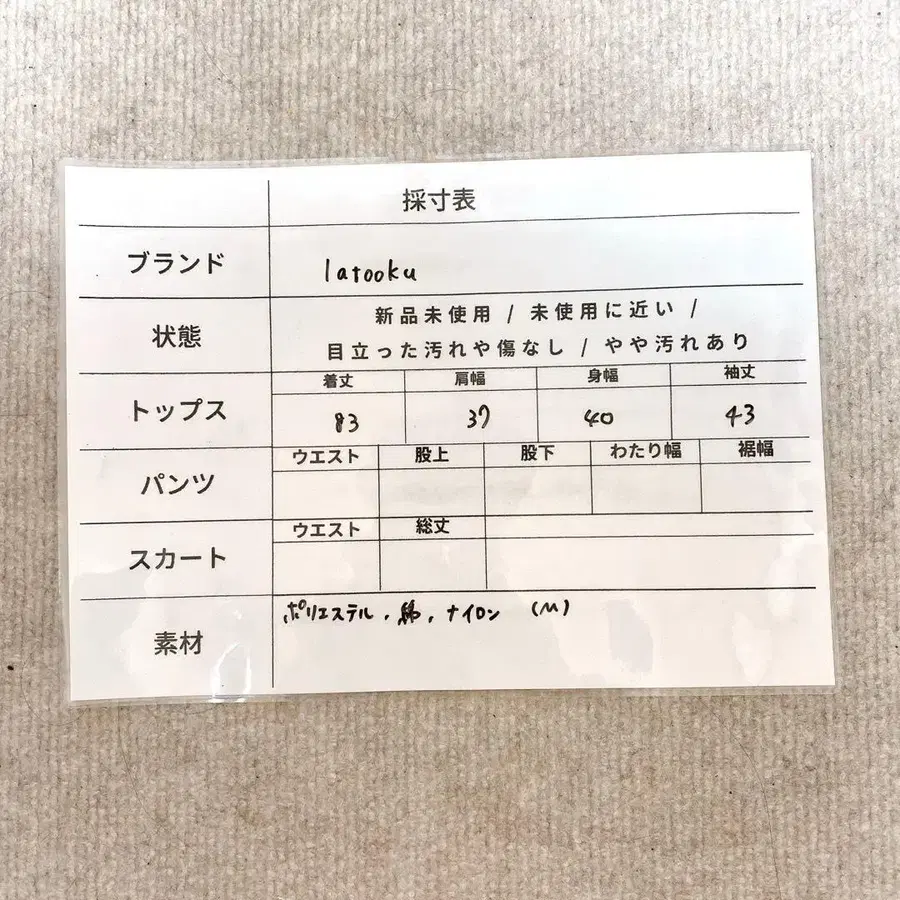 採寸表
ブランド latooku
状態 新品未使用 / 未使用に近い /
目立った汚れや傷なし / やや汚れあり
トップス 着丈 肩幅 身幅 袖丈
83 37 40 43
パンツ ウエスト 股上 股下 わたり幅 裾幅
スカート ウエスト 総丈
素材 ポリエステル, 綿, ナイロン (M)